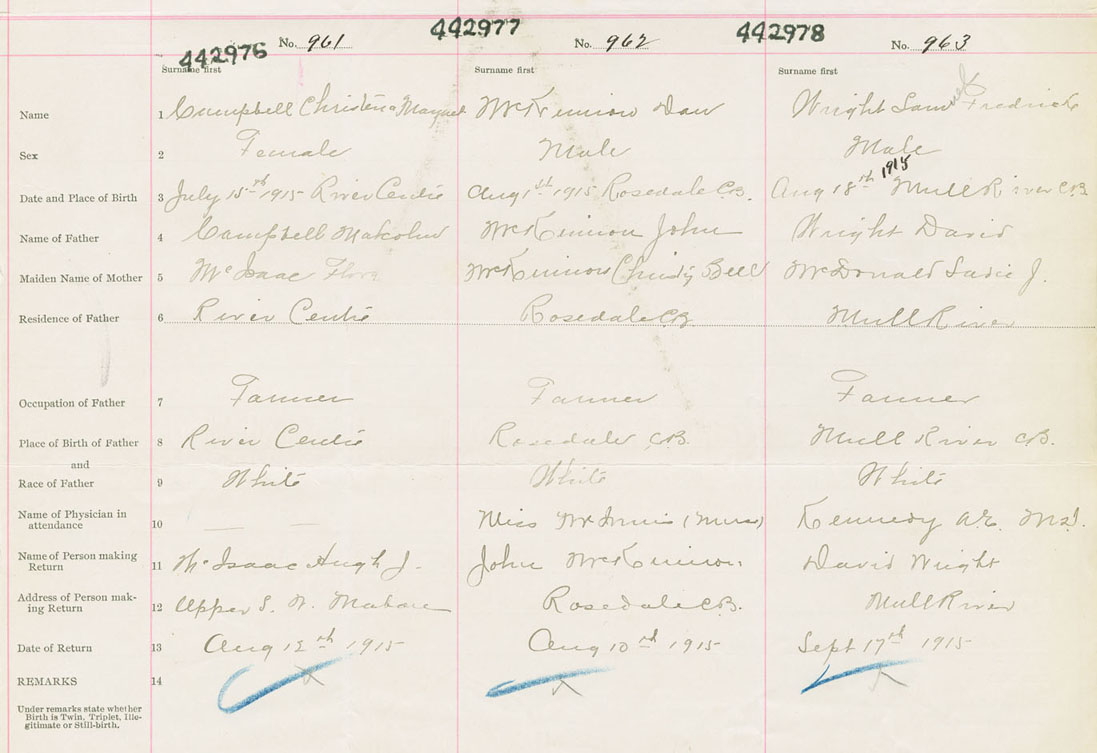 442976 No. 961 442977 No. 962 442978 No. 963
Surname first Surname first Surname first
Name 1 Campbell Christena Margaret McKinnon Dan Wright Samuel Fredrick
Sex 2 Female Male Male
Date and Place of Birth 3 July 15th 1915 River Centre Aug 1st 1915 Rosedale C.B. Aug 18th 1915 Mull River C.B.
Name of Father 4 Campbell Malcolm McKinnon John Wright David
Maiden Name of Mother 5 McIsaac Flora McKinnon Christy Bell McDonald Sadie J.
Residence of Father 6 River Centre Rosedale C.B. Mull River
Occupation of Father 7 Farmer Farmer Farmer
Place of Birth of Father 8 River Centre Rosedale C.B. Mull River C.B.
and
Race of Father 9 White White White
Name of Physician in
attendance 10 — — Miss (Nurse) Kennedy A.E. M.D.
Name of Person making
Return 11 McIsaac Hugh J. John McKinnon David Wright
Address of Person mak-
ing Return 12 Upper S. W. Mabou Rosedale C.B. Mull River
Date of Return 13 Aug 12th 1915 Aug 10th 1915 Sept 17th 1915
REMARKS 14
Under remarks state whether
Birth is Twin, Triplet, Ille-
gitimate or Still-birth.